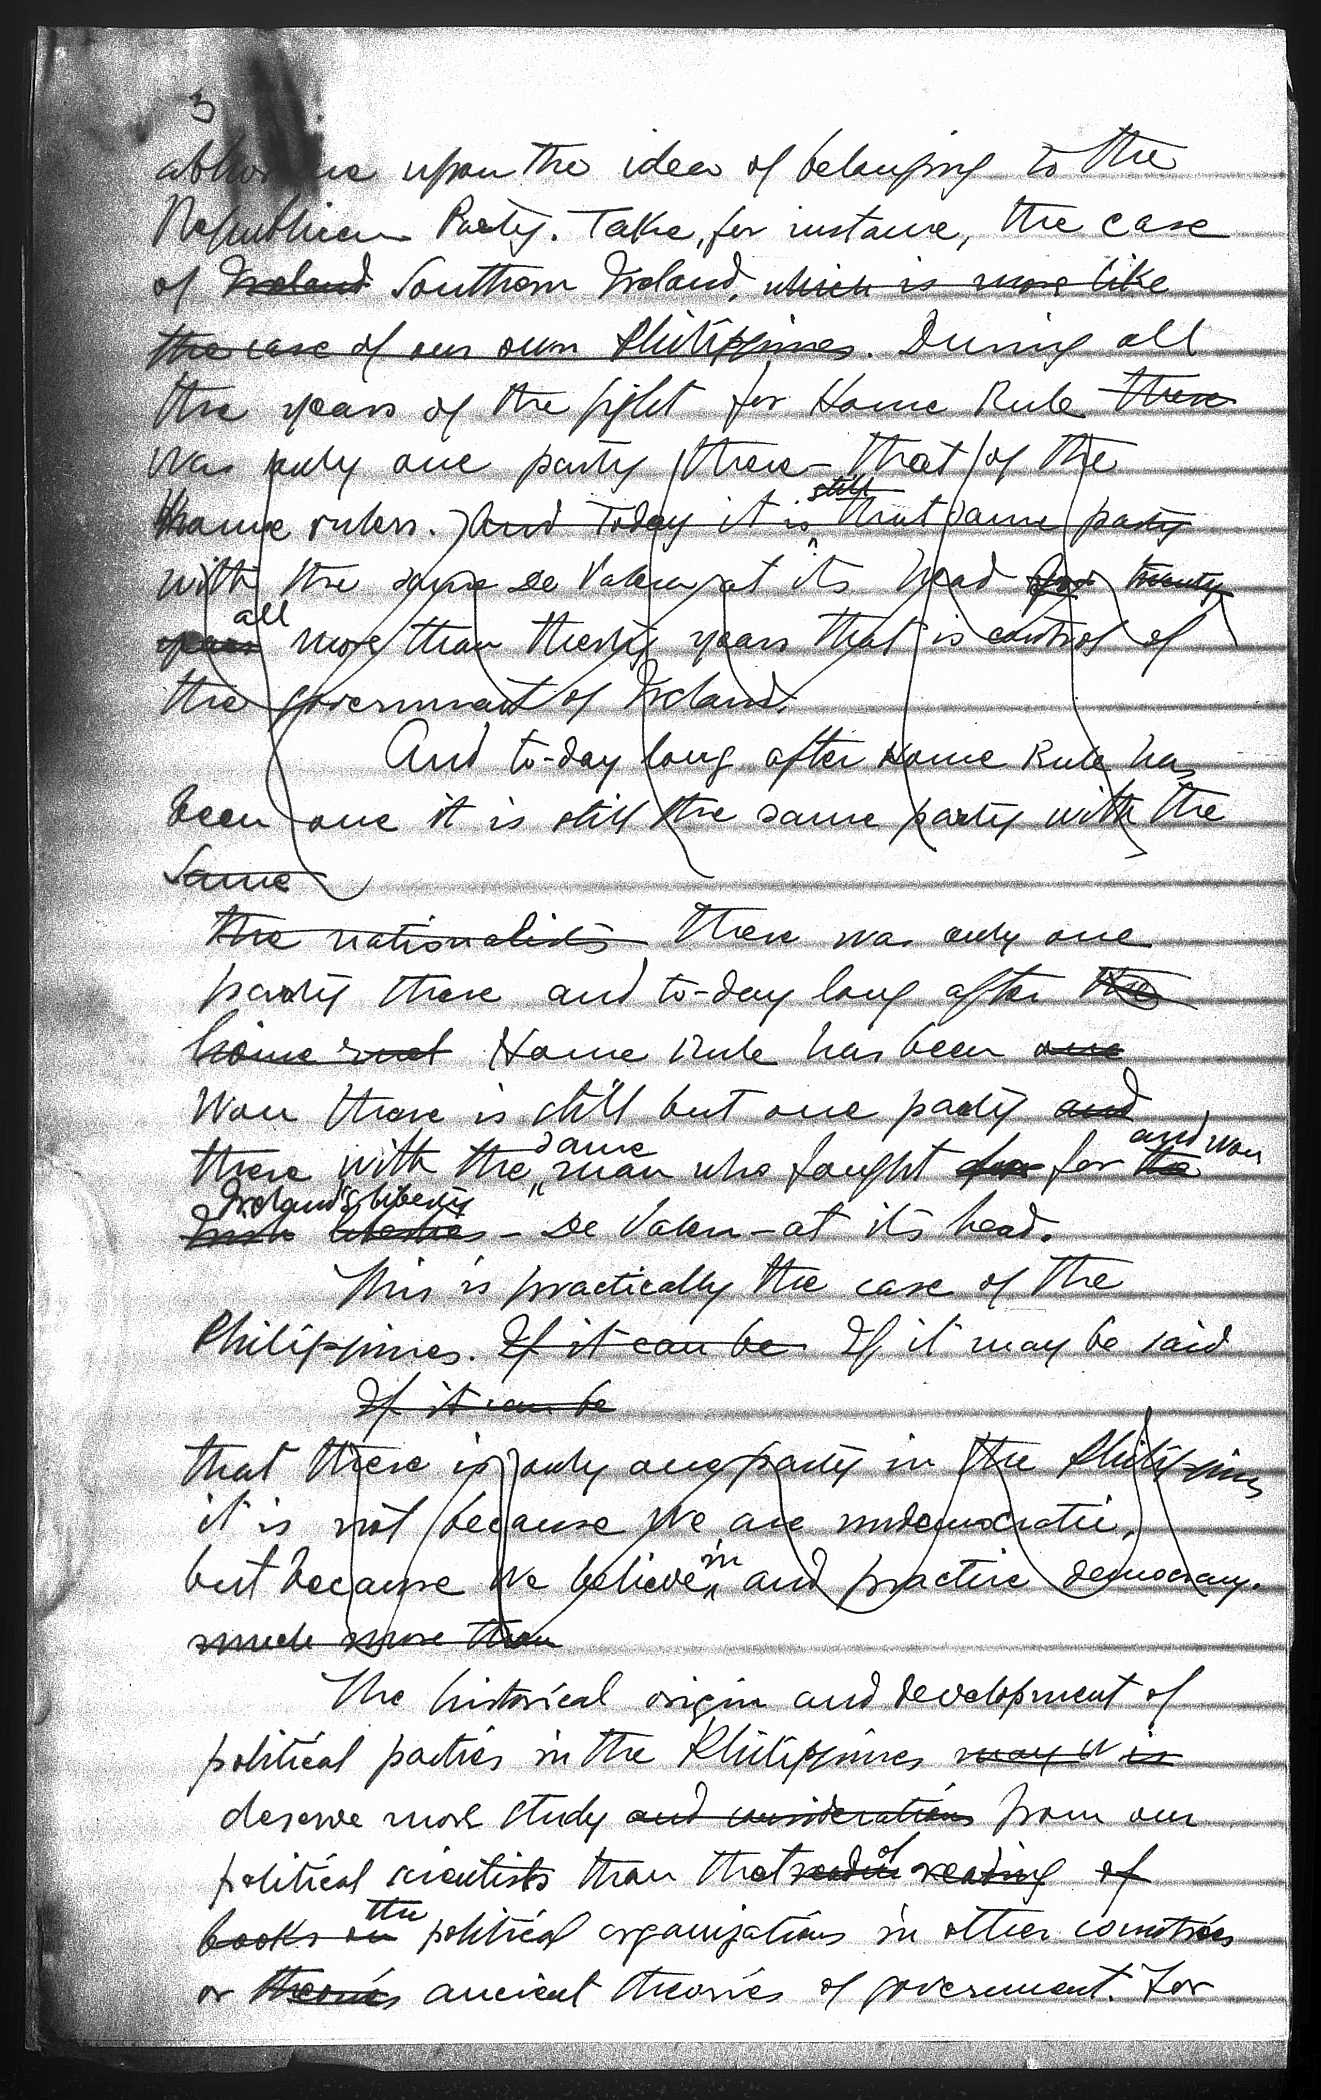 3
upon the idea of belonging to the
Republican Party. Take, for instance, the case
of Ireland Southern Ireland, which is more like
the case of our own Philippines. During all
the years of the fight for Home Rule there
was only one party there – that of the
Home rulers. And today it is still that same party
with the same De Valera at its head for twenty
years all more than thirty years that is control of
the government of Ireland.
And to-day long after Home Rule has
been one it is still the same party with the
Same
the nationalists there was only one
party there and to-day long after the
home rule Home Rule has been one
won there is still but one party and
there with the same man who fought for for the and won
Irish liberties Ireland's liberty – De Valera – at its head.
This is practically the case of the
Philippines. If it can be If it may be said
If it can be
that there is only one party in the Philippines
it is not because we are undemocratic,
but because we believe in and practice democracy.
much more than
The historical origin and development of
political parties in the Philippines may it is
deserve more study and considerations from our
political scientists than that of reading of
books on the political organizations in other countries
or theories ancient theories of government. For